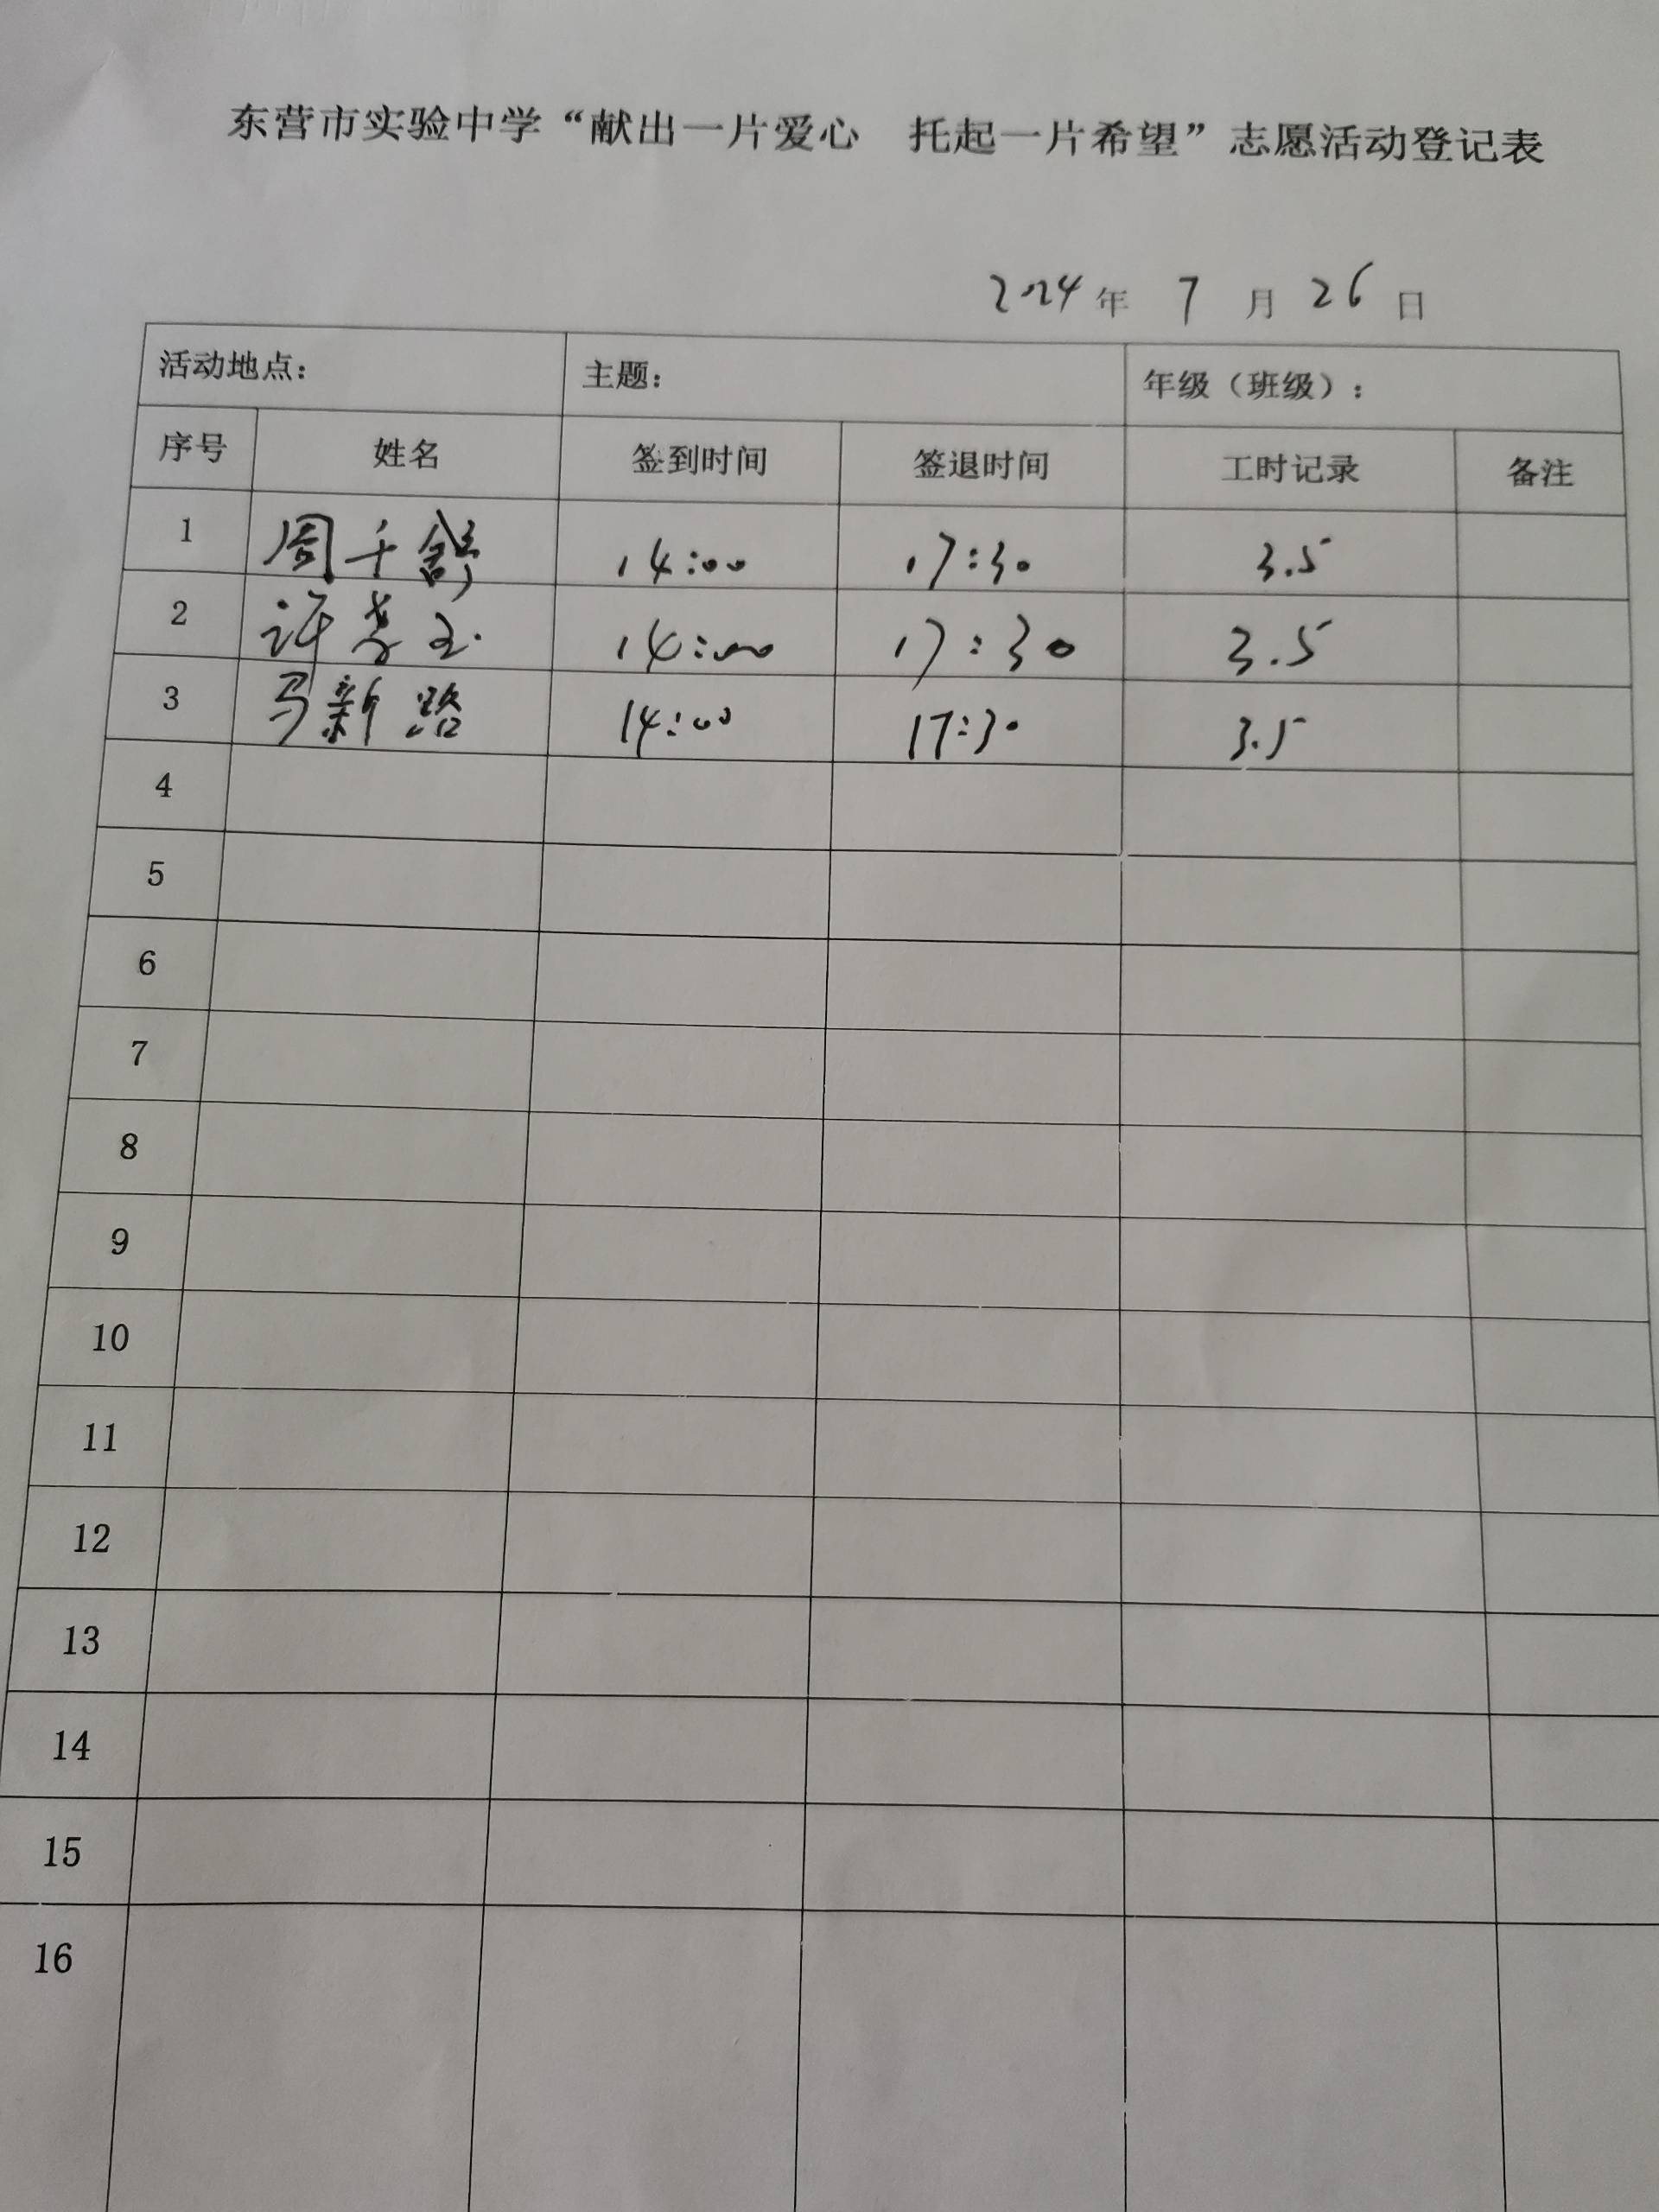 东营市实验中学“献出一片爱心 托起一片希望”志愿活动登记表
2024年 7 月 26 日
活动地点： 主题： 年级（班级）：
序号 姓名 签到时间 签退时间 工时记录 备注
1 周千舒 14:00 17:30 3.5
2 许 14:00 17:30 3.5
3 马新路 14:00 17:30 3.5
4
5
6
7
8
9
10
11
12
13
14
15
16